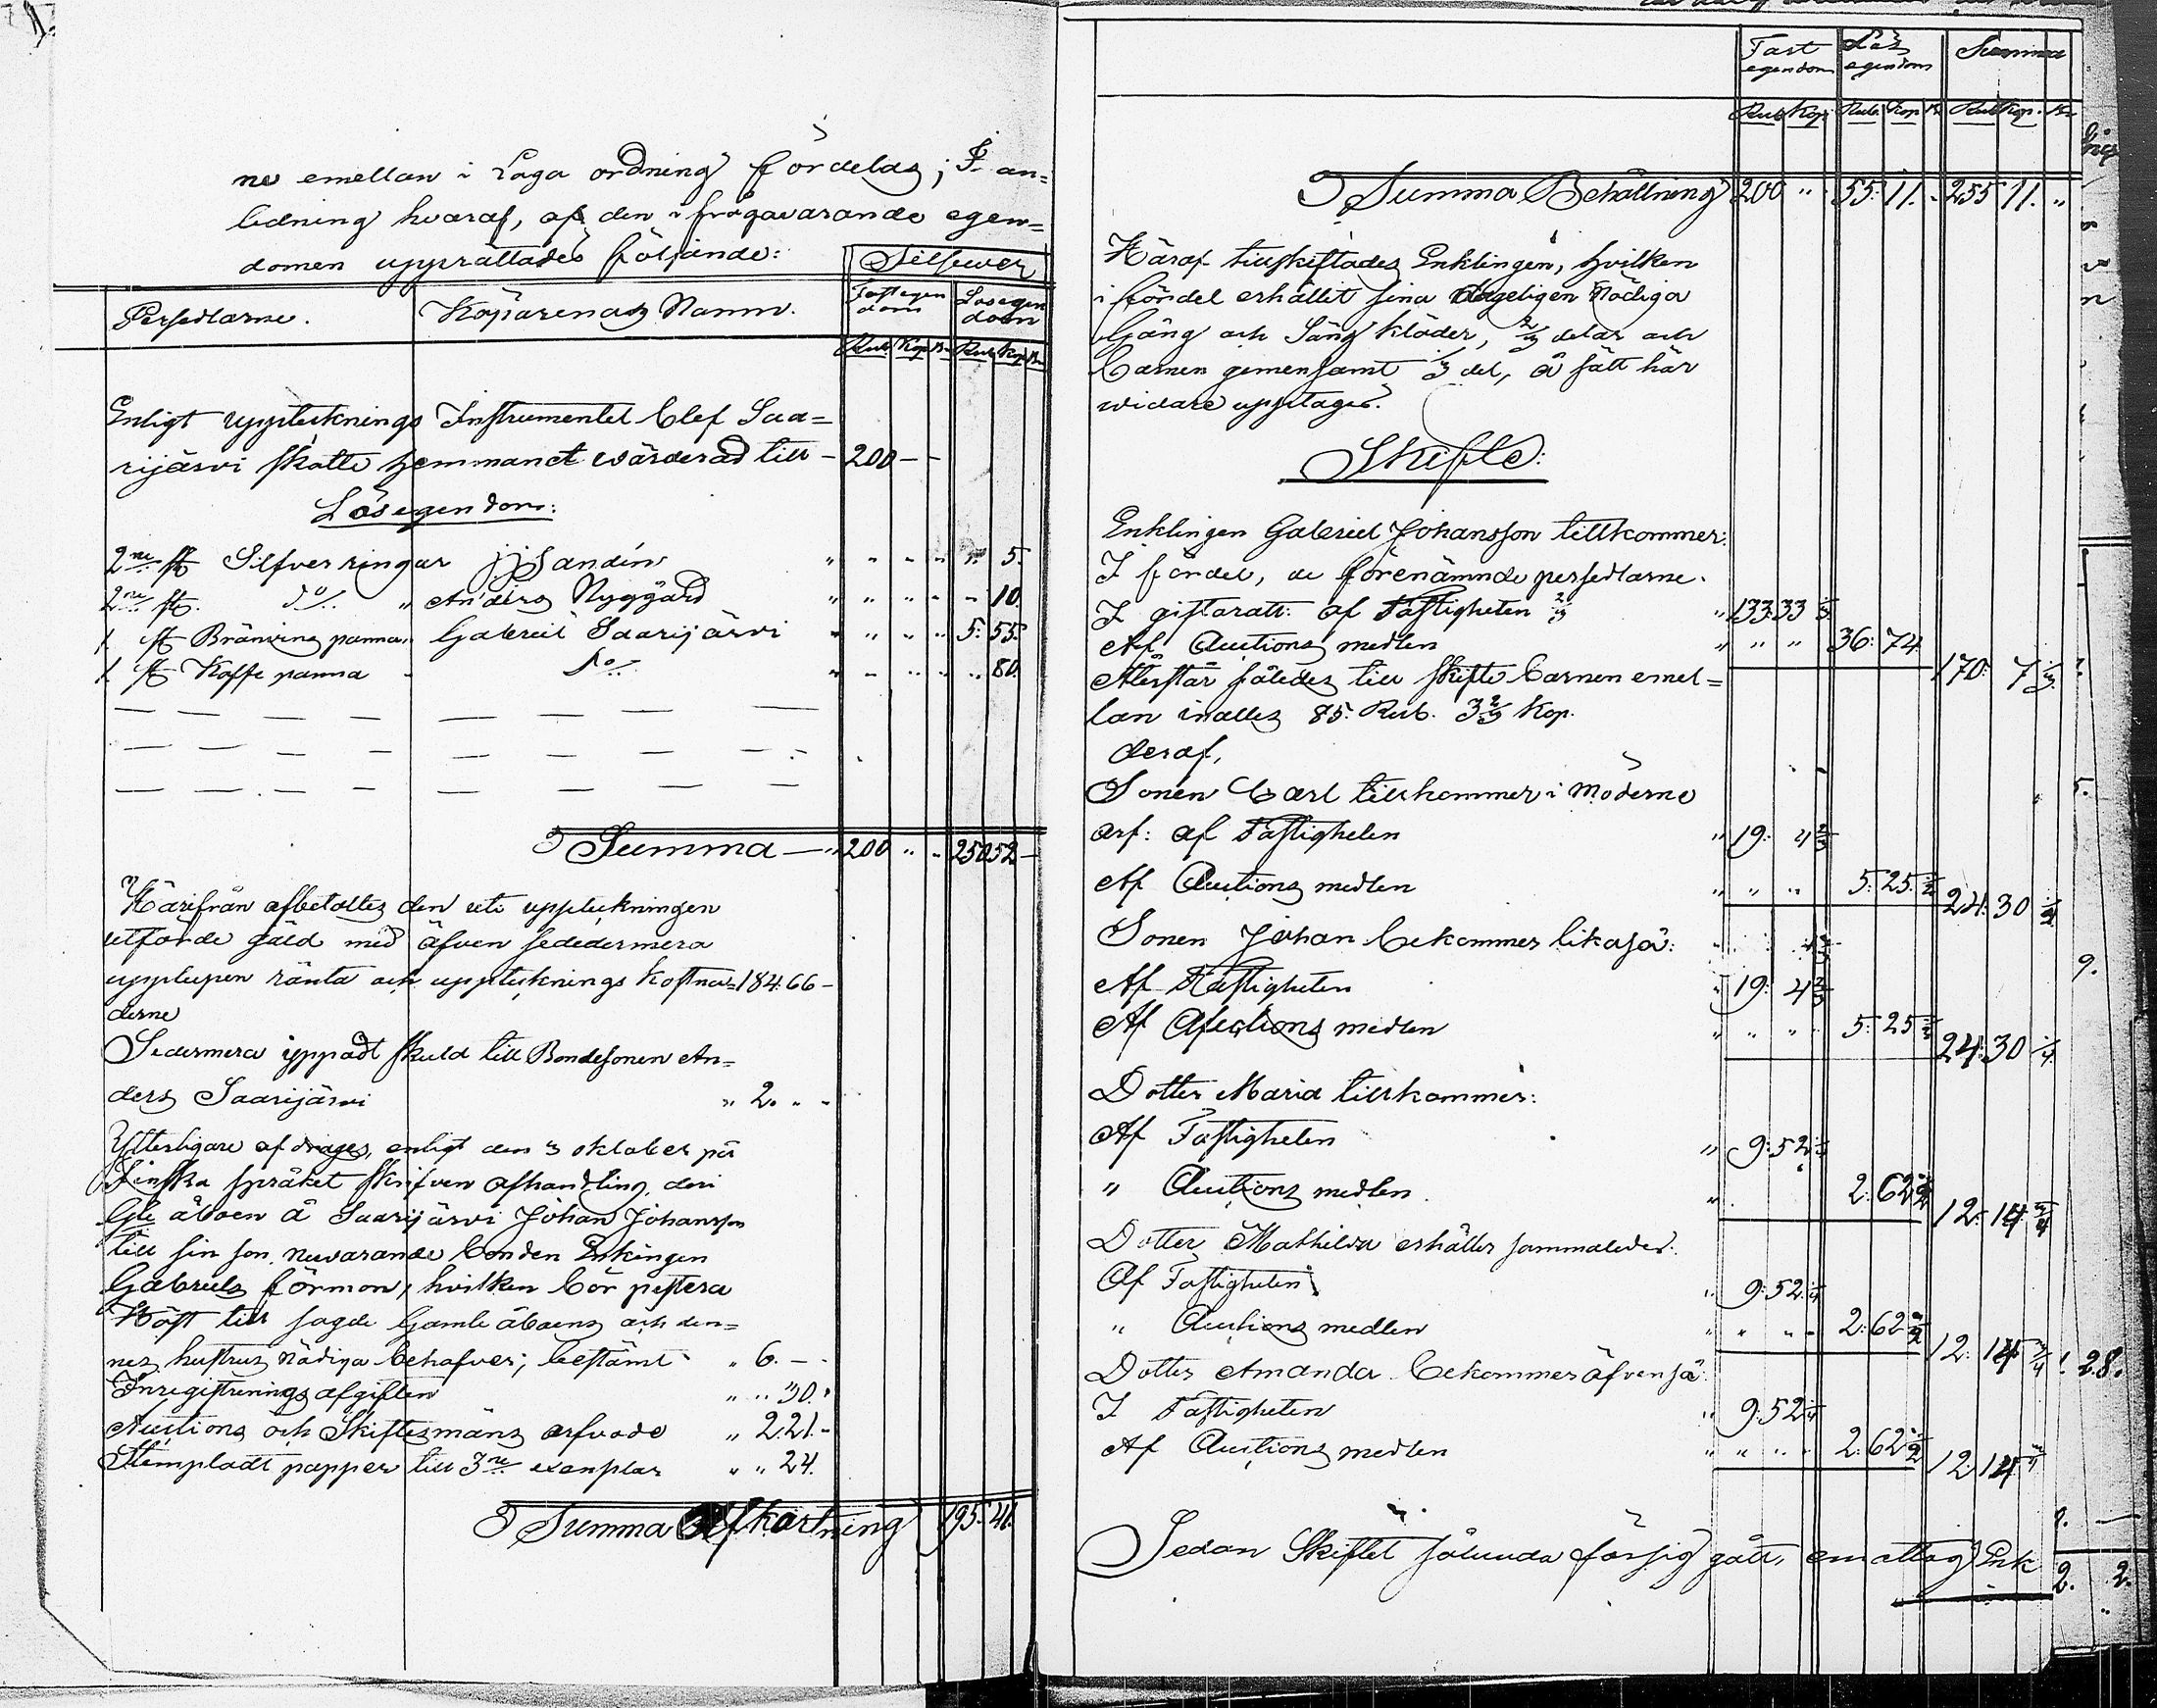 ne emellan i Laga ordning fördelas; I an=
ledning hvaraf, af den ifrågavarande egen=
domen upprättades följande:
Silfwer
Persedlarne. Köparenas Namn. Fast egen dom Lös egen dom
Rub Kop Rub Kop
Enligt uppteknings Instrumentet blef Saa=
rijärvi skatte hemmanet wärderad till — 200 — —
Lösegendom:
2ne st Silfver ringar J J Sandin " - - - " 5.
2ne st. do " Anders Nygård " " " - - 10.
1 st Bränvins panna Gabriel Saarijärvi " " " " 5: 55.
1 st Kaffe panna - do " - " - " 80.
Summa — " 200 " - 250 52 —
Härifrån afbetaltes den uti uppteckningen
utförde gäld med äfven sedermera
upplupen ränta och upptecknings kostna= 184: 66 —
derne
Sedermera yppadt skuld till Bondesonen An=
ders Saarijärvi " 2. " -
Ytterligare afdrages, enligt den 3 oktober på
Finska språket skrifven afhandling, deri
Gle åboen å Saarijärvi Johan Johansson
till sin son, nuvarande bonden Enkingen
Gabriels förmon, hvilken bör
till sagde Gamle åboens och den=
nes hustrus nödiga behofver; bestämt " 6. — -
Inregistrerings afgiften " " 30.
Auctions och Skiftesmäns arfvode " 2.21. -
Stempladt papper till 3ne exemplar " " 24.
Summa Afkortning 195. 41.
Fast egendom Lös egendom Summa
Rub Kop Rub. Kop Rub Kop.
Summa Behållning 200 " 55: 11. - 255 11. "
Häraf tillskiftades Enklingen, hvilken
i fördel erhållit sina dageligen Nödiga
Gång och Säng kläder, 2/3 delar och
Barnen gemensamt 1/3 del, å sätt här
widare upptages.
Skifte:
Enklingen Gabriel Johansson tillkommer.
I fördel, de förenämnde persedlarne.
I giftorätt: af Fastigheten 2/3 " 133 33 1/3
Af Auctions medlen " " " 36: 74
170: 7 1/3
Återstår således till skifte barnen emel=
lan inalles 85: Rub. 3 2/3 Kop.
deraf,
Sonen Carl tillkommer i Möderne
arf: af Fastigheten " 19: 4 2/3
Af Auctions medlen " " " 5: 25.
24: 30
Sonen Johan bekommer likaså:
Af Fastigheten " 19: 4 2/3
Af Auctions medlen " " " 5: 25
24: 30
Dotter Maria tillkommer:
Af Fastigheten " 9: 52
" Auctions medlen " 2: 62
12: 14
Dotter Mathilda erhåller sammaledes:
Af Fastigheten " 9: 52
" Auctions medlen " " " 2: 62
12: 14
Dotter Amanda bekommer äfvenså
I Fastigheten " 9: 52
Af Auctions medlen " " " 2: 62
12: 14
Sedan Skiftet sålunda försig gått, emottog Enk